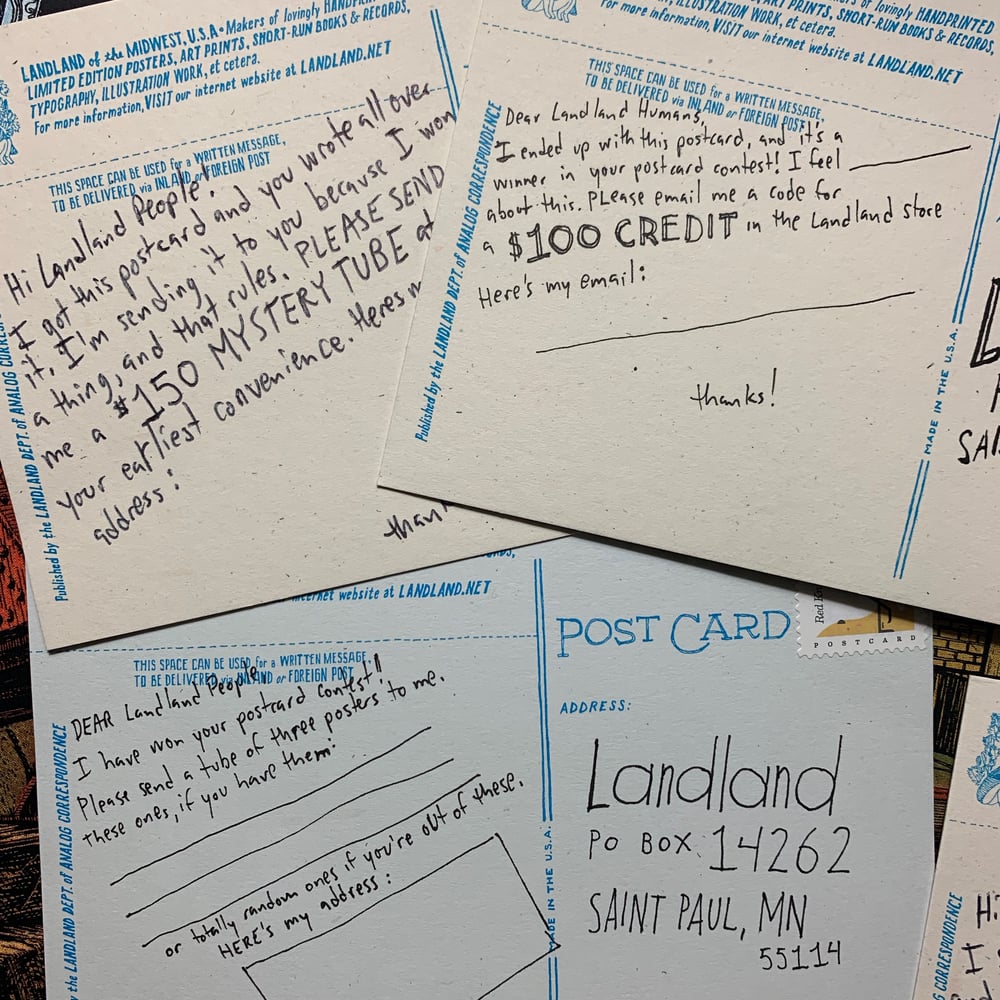 LANDLAND of the MIDWEST, U.S.A • Makers of lovingly HANDPRINTED
LIMITED EDITION POSTERS, ART PRINTS, SHORT-RUN BOOKS & RECORDS,
TYPOGRAPHY, ILLUSTRATION WORK, et cetera.
For more information, VISIT our internet website at LANDLAND.NET
THIS SPACE CAN BE USED for a WRITTEN MESSAGE,
TO BE DELIVERED via INLAND or FOREIGN POST
Hi Landland People!
I got this postcard and you wrote all over
it, I'm sending it to you because I won
a thing, and that rules. PLEASE SEND
me a $150 MYSTERY TUBE at
your earliest convenience. Heres m
address:
than
Published by the LANDLAND DEPT. of ANALOG CORRES
of lovingly HANDPRINTED
ART PRINTS, SHORT-RUN BOOKS & RECORDS,
ILLUSTRATION WORK, et cetera.
For more information, VISIT our internet website at LANDLAND.NET
THIS SPACE CAN BE USED for a WRITTEN MESSAGE,
TO BE DELIVERED via INLAND or FOREIGN POST
Dear Landland Humans,
I ended up with this postcard, and it's a
winner in your postcard contest! I feel
about this. PLease email me a code for
a $100 CREDIT in the Landland store
Here's my email:
thanks!
Published by the LANDLAND DEPT. of ANALOG CORRESPONDENCE
MADE IN THE U.S.A.
L
SAI
internet website at LANDLAND.NET
THIS SPACE CAN BE USED for a WRITTEN MESSAGE,
TO BE DELIVERED via INLAND or FOREIGN POST
DEAR Landland People
I have won your postcard contest!
Please send a tube of three posters to me.
these ones, if you have them:
or totally random ones if you're out of these.
HERE's my address:
by the LANDLAND DEPT. of ANALOG CORRESPONDENCE
MADE IN THE U.S.A.
POST CARD
POSTCARD
ADDRESS:
Landland
PO BOX 14262
SAINT PAUL, MN
55114
Hi
I
CORRESPONDENCE